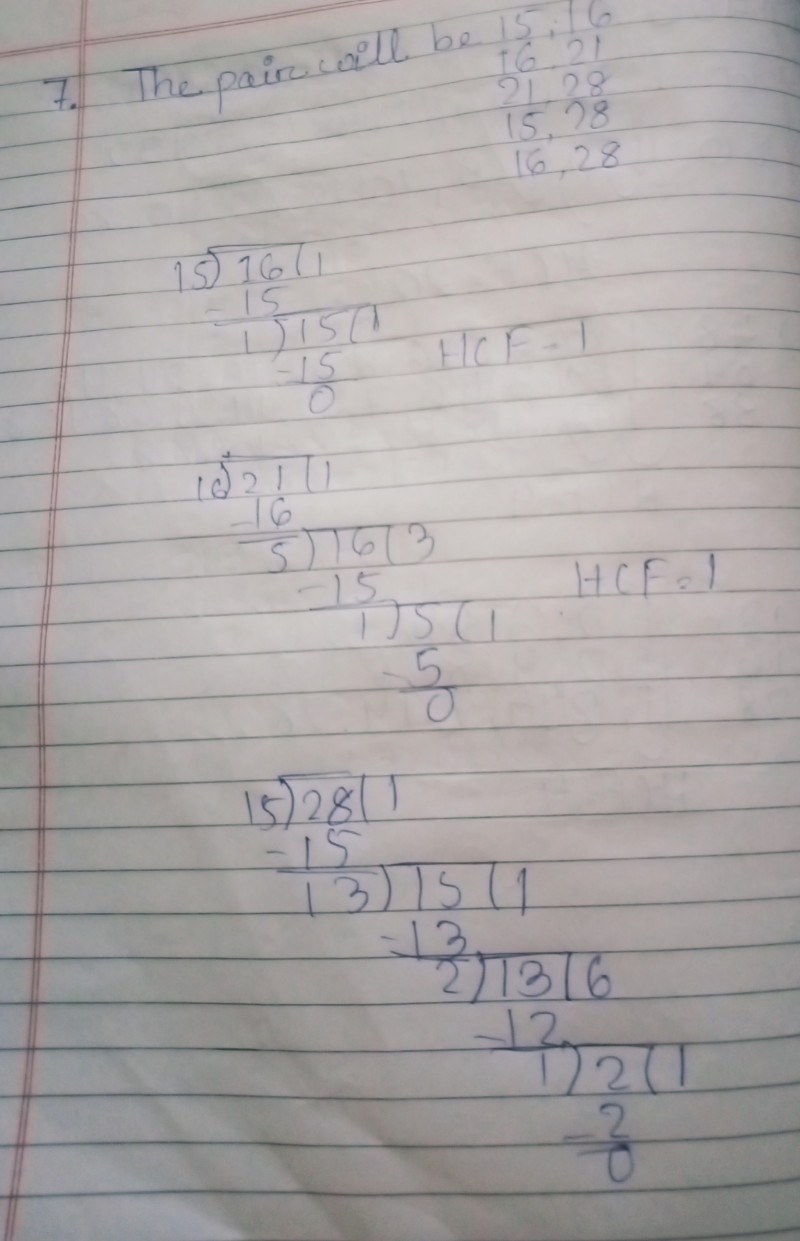 7. The pair will be 15, 16
16, 21
21, 28
15, 28
16, 28
15) 16 (1
- 15
1) 15 (1
- 15
0
HCF = 1
16) 21 (1
- 16
5) 16 (3
- 15
1) 5 (1
- 5
0
HCF = 1
15) 28 (1
- 15
13) 15 (1
- 13
2) 13 (6
- 12
1) 2 (1
- 2
0